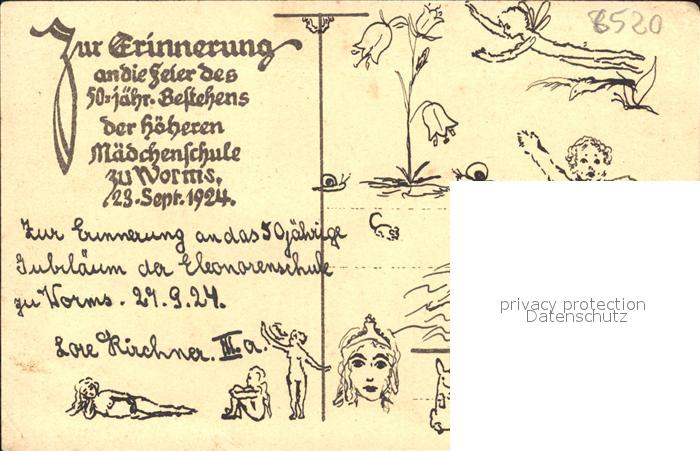 Zur Erinnerung
an die Feier des
50=jähr. Bestehens
der Höheren
Mädchenschule
zu Worms,
23. Sept. 1924.
Zur Erinnerung an das 50jährige
Jubiläum der Eleonorenschule
zu Worms. 27.9.24.
Lore Kirchner. III a.
6520
privacy protection
Datenschutz